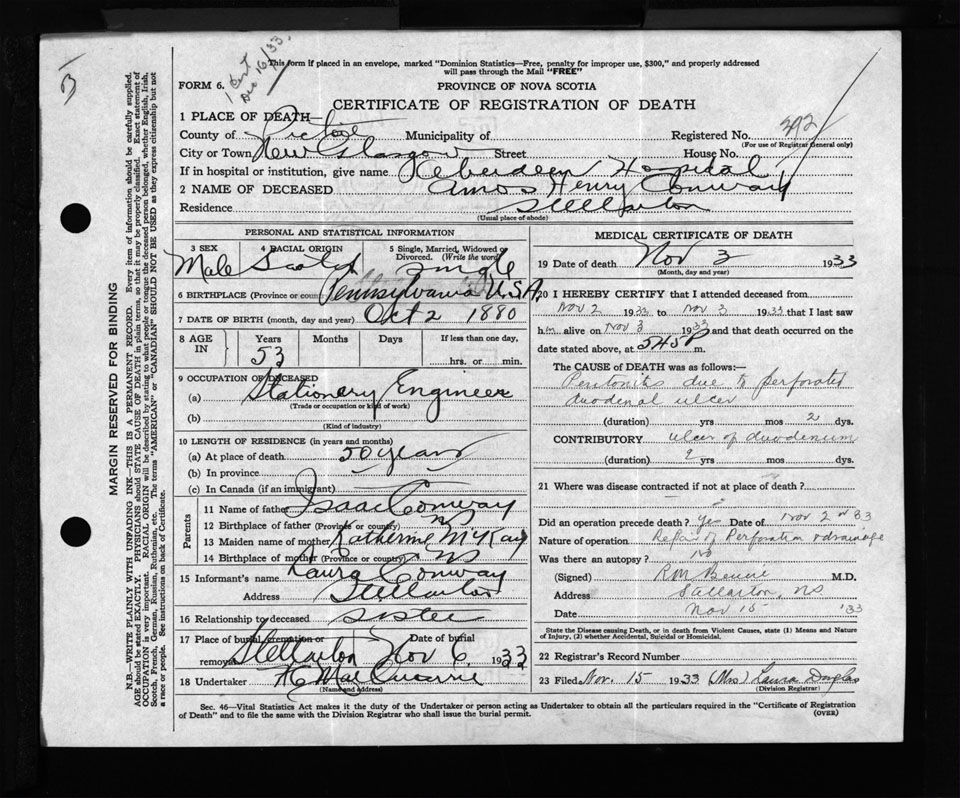 1 Cert
Dec 16/33
This form if placed in an envelope, marked "Dominion Statistics—Free, penalty for improper use, $300," and properly addressed
will pass through the Mail "FREE"
FORM 6.
PROVINCE OF NOVA SCOTIA
CERTIFICATE OF REGISTRATION OF DEATH
1 PLACE OF DEATH
County of Pictou Municipality of Registered No. 292
(For use of Registrar General only)
City or Town New Glasgow Street House No.
If in hospital or institution, give name Aberdeen Hospital
2 NAME OF DECEASED Amos Henry Conway
Residence Stellarton
(Usual place of abode)
PERSONAL AND STATISTICAL INFORMATION
3 SEX 4 RACIAL ORIGIN 5 Single, Married, Widowed or Divorced. (Write the word)
Male Scotch Single
6 BIRTHPLACE (Province or country) Pennsylvania U.S.A.
7 DATE OF BIRTH (month, day and year) Oct 2 1880
8 AGE IN Years Months Days If less than one day,
53 hrs. or min.
9 OCCUPATION OF DECEASED
(a) Stationery Engineer
(Trade or occupation or kind of work)
(b)
(Kind of industry)
10 LENGTH OF RESIDENCE (in years and months)
(a) At place of death 50 years
(b) In province
(c) In Canada (if an immigrant)
Parents
11 Name of father Isaac Conway
12 Birthplace of father (Province or country) NS
13 Maiden name of mother Katherine McKay
14 Birthplace of mother (Province or country) NS
15 Informant's name Laura Conway
Address Stellarton
16 Relationship to deceased Sister
17 Place of burial, cremation or removal Stellarton Date of burial Nov 6 1933
18 Undertaker
(Name and address)
MEDICAL CERTIFICATE OF DEATH
19 Date of death Nov 3 1933
(Month, day and year)
20 I HEREBY CERTIFY that I attended deceased from
Nov 2 1933 to Nov 3 1933 that I last saw
him alive on Nov 3 1933 and that death occurred on
date stated above, at 545P m.
The CAUSE OF DEATH was as follows:—
Peritonitis due to perforated
duodenal ulcer
(duration) yrs mos 2 dys.
CONTRIBUTORY ulcer of duodenum
(duration) yrs mos dys.
21 Where was disease contracted if not at place of death?
Did an operation precede death? Yes Date of Nov 2nd 33
Nature of operation Repair of Perforation & drainage
Was there an autopsy? no
(Signed) M.D.
Address Stellarton, NS
Date Nov 15 '33
State the Disease causing Death, or in death from Violent Causes, state (1) Means and Nature
of Injury, (2) whether Accidental, Suicidal or Homicidal.
22 Registrar's Record Number
23 Filed Nov. 15 1933 (Mrs) Laura Douglas
(Division Registrar)
Sec. 46—Vital Statistics Act makes it the duty of the Undertaker or person acting as Undertaker to obtain all the particulars required in the "Certificate of Registration
of Death" and to file the same with the Division Registrar who shall issue the burial permit.
(OVER)
MARGIN RESERVED FOR BINDING
N.B.—WRITE PLAINLY WITH UNFADING INK—THIS IS A PERMANENT RECORD. Every item of information should be carefully supplied.
AGE should be stated EXACTLY. PHYSICIANS should STATE CAUSE OF DEATH in plain terms, so that it may be properly classified. Exact statement of
OCCUPATION is very important. RACIAL ORIGIN will be described by stating to what people or tongue the deceased person belonged, whether English, Irish,
Scotch, French, German, Russian, Ruthenian, etc. The terms "AMERICAN" or "CANADIAN" SHOULD NOT BE USED as they express citizenship but not
a race or people. See instructions on back of Certificate.